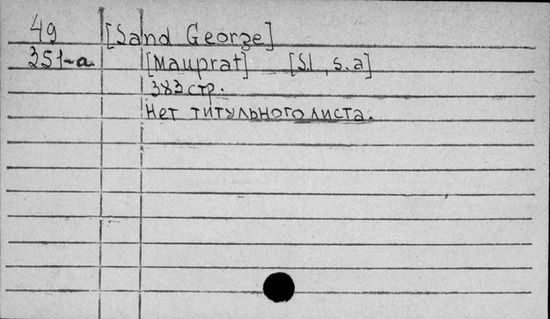 49 [Sand George]
351-a [Mauprat] [S.l., s.a]
383 стр.
Нет титульного листа.